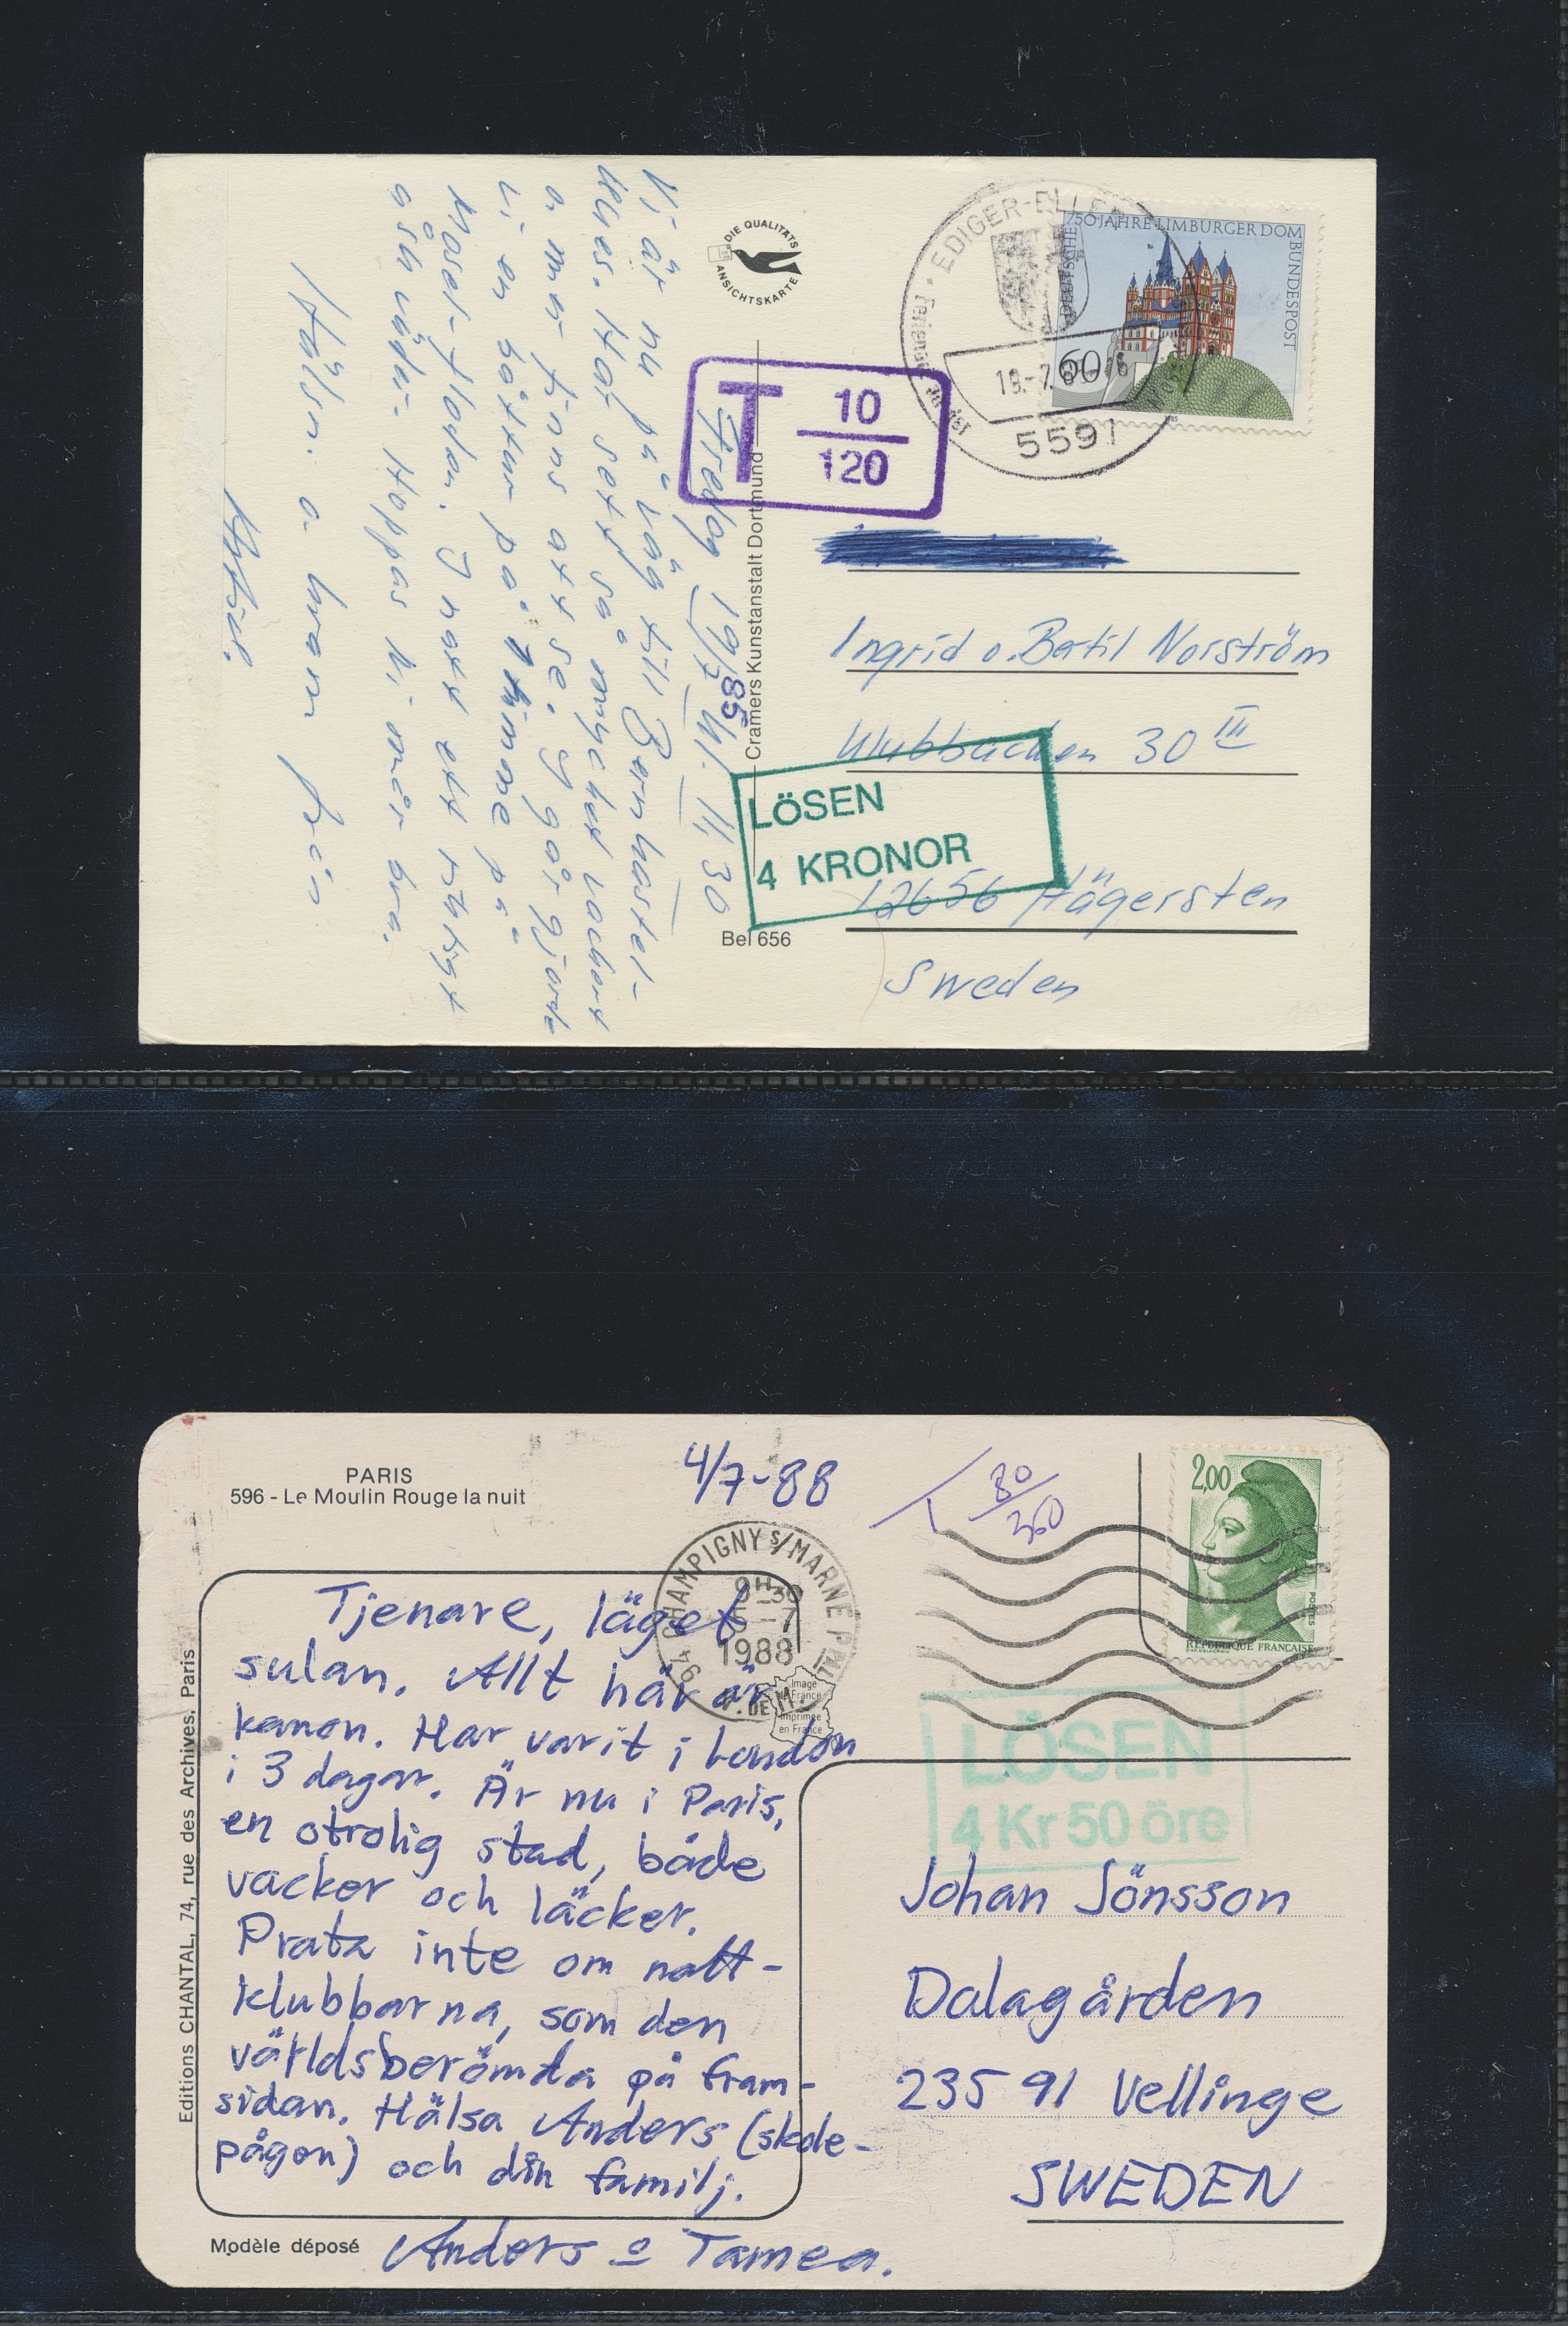 DIE QUALITÄTS
ANSICHTSKARTE
EDIGER-ELLER
19.-7.85
5591
750 JAHRE LIMBURGER DOM
DEUTSCHE BUNDESPOST
60
T 10
120
Fredag 19/7 85 kl. 11,30
Vi är nu på väg till Bernkastel-
Kues. Har sett så mycket vackert
o. mer finns att se. I går gjorde
vi en båttur på 1 timme på
Mosel-floden. I natt ett riktigt
åsk väder. Hoppas Ni mår bra.
Hälsn. o. kram från
Cramers Kunstanstalt Dortmund
Bel 656
LÖSEN
4 KRONOR
Ingrid o. Bertil Norström
Klubbacken 30 III
12656 Hägersten
Sweden
PARIS
596 - Le Moulin Rouge la nuit
4/7-88
T 80
360
2,00
POSTES
REPUBLIQUE FRANCAISE
94 CHAMPIGNY S/MARNE PPAL
9H30
5-7
1988
V. DE M.
Image
de France
Imprimée
en France
Tjenare, läget
sulan. Allt här är
kanon. Har varit i London
i 3 dagar. Är nu i Paris,
en otrolig stad, både
vacker och läcker.
Prata inte om natt-
klubbarna, som den
världsberömda på fram-
sidan. Hälsa Anders (skole-
pågen) och din familj.
Anders o Tamea.
Editions CHANTAL, 74, rue des Archives, Paris
Modèle déposé
LÖSEN
4 Kr 50 öre
Johan Jönsson
Dalagården
235 91 Vellinge
SWEDEN